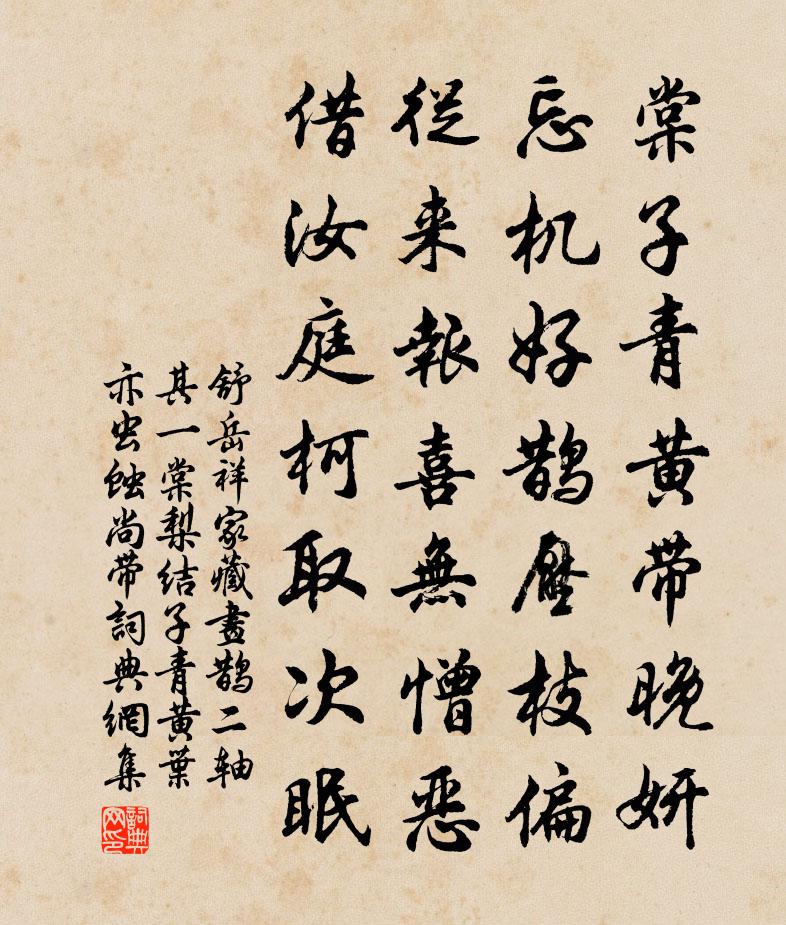 棠子青黄带晚妍
忘机好鹊压枝偏
從来報喜無憎恶
借汝庭柯取次眠
舒岳祥家藏畫鹊二軸
其一棠梨结子青黄葉
亦虫蚀尚带詞典網集
詞典网印